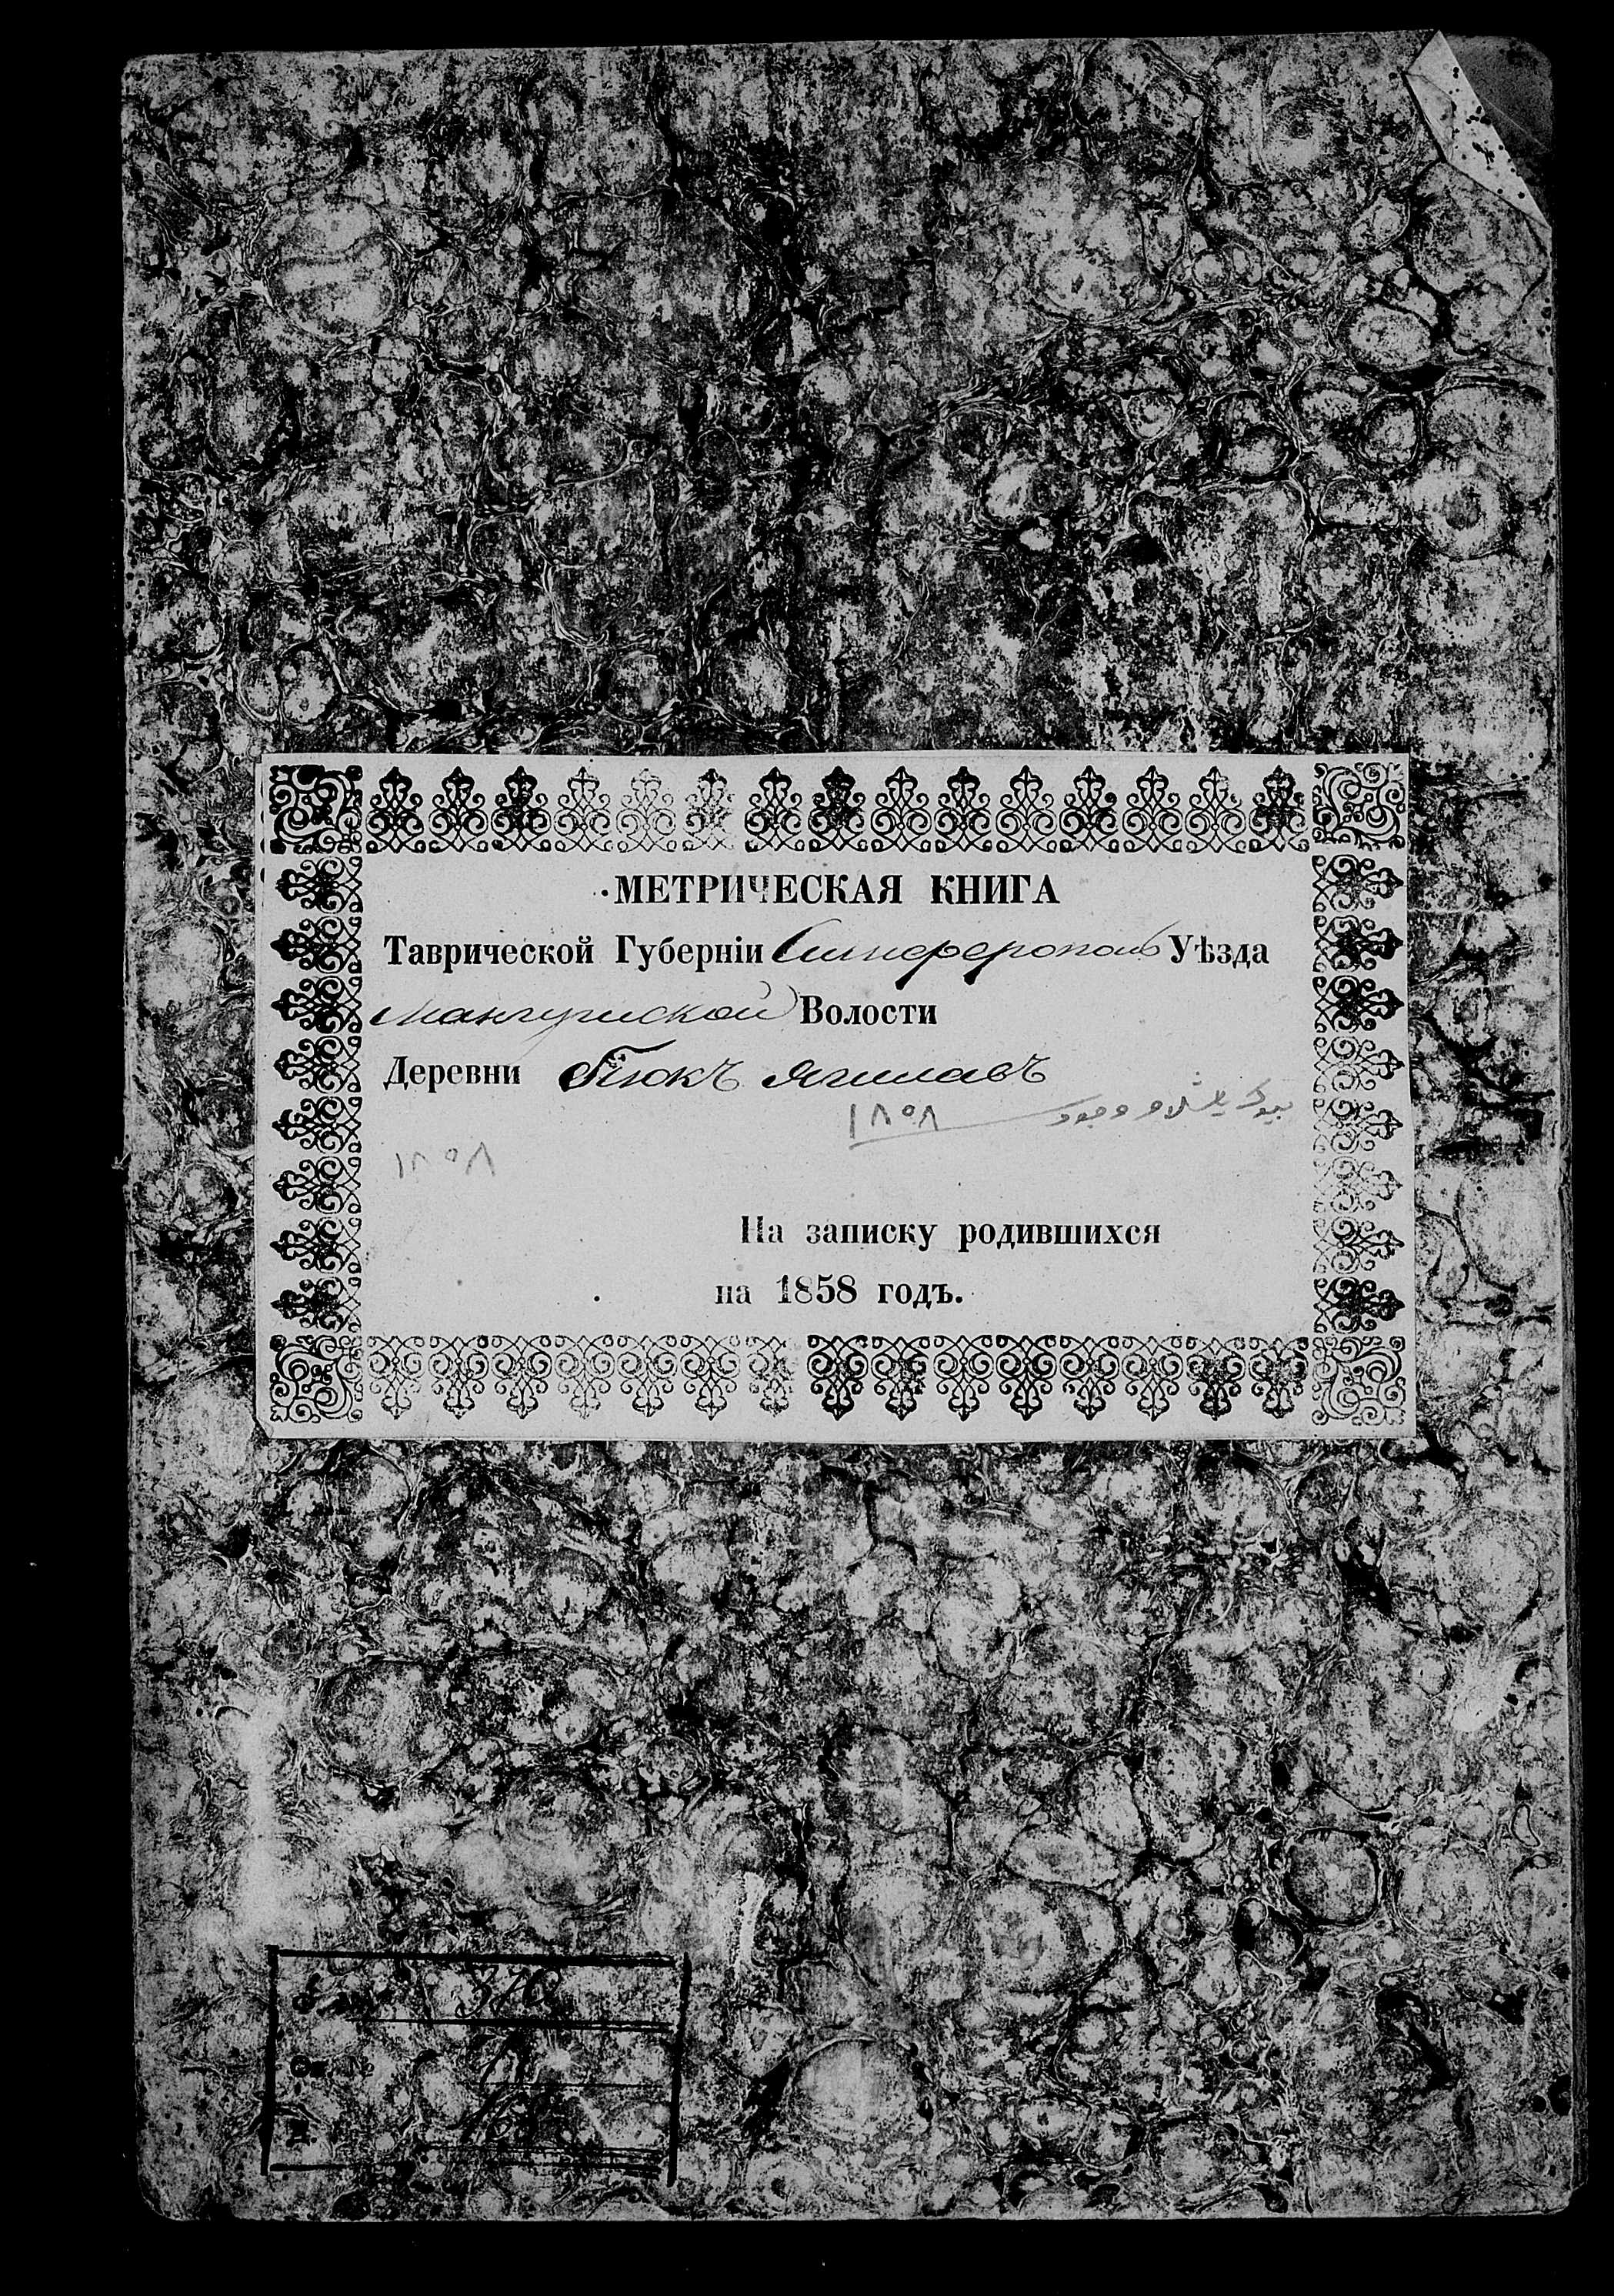 МЕТРИЧЕСКАЯ КНИГА
Таврической Губерніи Симферополь Уѣзда
Мангушской Волости
Деревни Біюкъ Яшлавъ
بيوك ياشلاو ١٨٥٨
١٨٥٨
На записку родившихся
на 1858 годъ.
370
Оп. №